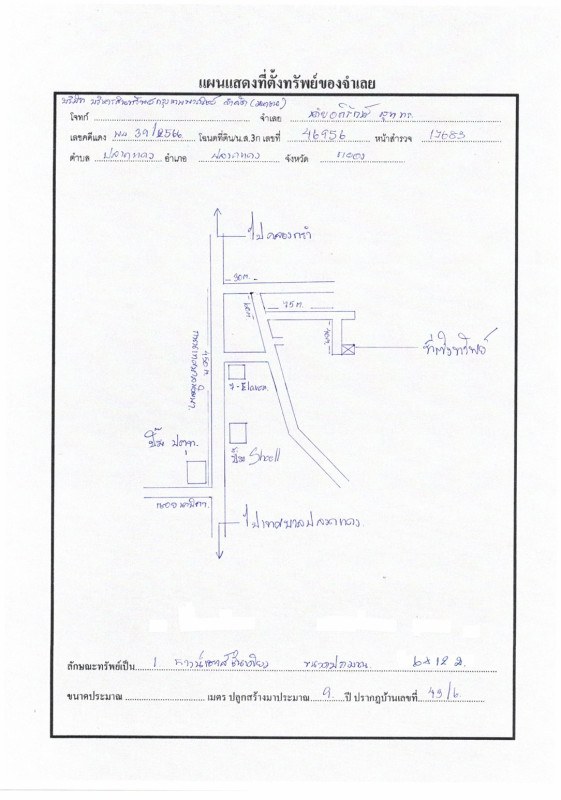 แผนแสดงที่ตั้งทรัพย์ของจำเลย
บริษัท บริหารสินทรัพย์กรุงเทพพาณิชย์ จำกัด (มหาชน)
โจทก์ จำเลย
เลขคดีแดง ผบ 39/2566 โฉนดที่ดิน/น.ส.3ก เลขที่ 46956 หน้าสำรวจ 17683
ตำบล ปลวกแดง อำเภอ ปลวกแดง จังหวัด ระยอง
ไปคลองกรำ
90 ม.
75 ม.
40 ม.
ที่ตั้งทรัพย์
450 ม.
7-Eleven
ปั๊ม ปตท.
ปั๊ม Shell
ไปเทศบาลปลวกแดง
ลักษณะทรัพย์เป็น 1 ทาวน์เฮาส์ชั้นเดียว ขนาดประมาณ 6x12 ม.
ขนาดประมาณ เมตร ปลูกสร้างมาประมาณ 9 ปี ปรากฏบ้านเลขที่ 49/6